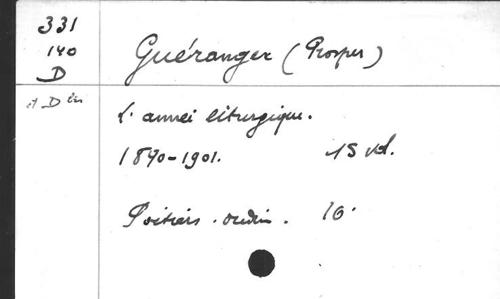 331
140
D
Guéranger (Prosper)
et D bis
L'année liturgique.
1890-1901. 15 vol.
Poitiers. Oudin. 16°